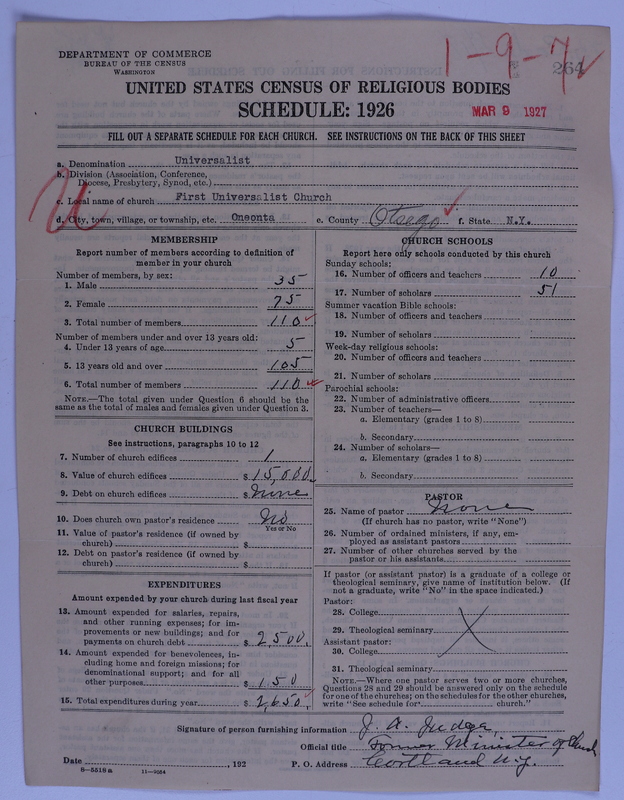 DEPARTMENT OF COMMERCE
BUREAU OF THE CENSUS
WASHINGTON
1-9-7
264
UNITED STATES CENSUS OF RELIGIOUS BODIES
SCHEDULE: 1926
MAR 9 1927
FILL OUT A SEPARATE SCHEDULE FOR EACH CHURCH. SEE INSTRUCTIONS ON THE BACK OF THIS SHEET
a. Denomination Universalist
b. Division (Association, Conference,
Diocese, Presbytery, Synod, etc.)
c. Local name of church First Universalist Church
U
d. City, town, village, or township, etc. Oneonta e. County Otsego f. State N.Y.
MEMBERSHIP
Report number of members according to definition of
member in your church
Number of members, by sex:
1. Male 35
2. Female 75
3. Total number of members 110
Number of members under and over 13 years old:
4. Under 13 years of age 5
5. 13 years old and over 105
6. Total number of members 110
NOTE.—The total given under Question 6 should be
same as the total of males and females given under Question 3.
CHURCH BUILDINGS
See instructions, paragraphs 10 to 12
7. Number of church edifices 1
8. Value of church edifices $15,000.
9. Debt on church edifices $None
10. Does church own pastor's residence No
Yes or No
11. Value of pastor's residence (if owned by
church) $
12. Debt on pastor's residence (if owned by
church) $
EXPENDITURES
Amount expended by your church during last fiscal year
13. Amount expended for salaries, repairs,
and other running expenses; for im-
provements or new buildings; and for
payments on church debt $2,500.
14. Amount expended for benevolences, in-
cluding home and foreign missions; for
denominational support; and for all
other purposes $150
15. Total expenditures during year $2,650.
CHURCH SCHOOLS
Report here only schools conducted by this church
Sunday schools:
16. Number of officers and teachers 10
17. Number of scholars 51
Summer vacation Bible schools:
18. Number of officers and teachers
19. Number of scholars
Week-day religious schools:
20. Number of officers and teachers
21. Number of scholars
Parochial schools:
22. Number of administrative officers
23. Number of teachers—
a. Elementary (grades 1 to 8)
b. Secondary
24. Number of scholars—
a. Elementary (grades 1 to 8)
b. Secondary
PASTOR
25. Name of pastor None
(If church has no pastor, write "None")
26. Number of ordained ministers, if any, em-
ployed as assistant pastors
27. Number of other churches served by the
pastor or his assistants
If pastor (or assistant pastor) is a graduate of a college or
theological seminary, give name of institution below. (If
not a graduate, write "No" in the space indicated.)
Pastor:
28. College
29. Theological seminary
Assistant pastor:
30. College
31. Theological seminary
NOTE.—Where one pastor serves two or more churches,
Questions 28 and 29 should be answered only on the schedule
for one of the churches; on the schedules for the other churches,
write "See schedule for church."
Signature of person furnishing information J. A. Judge
Official title Former Minister of Church
Date , 192 P. O. Address Cortland N.Y.
8-5518a 11-9054